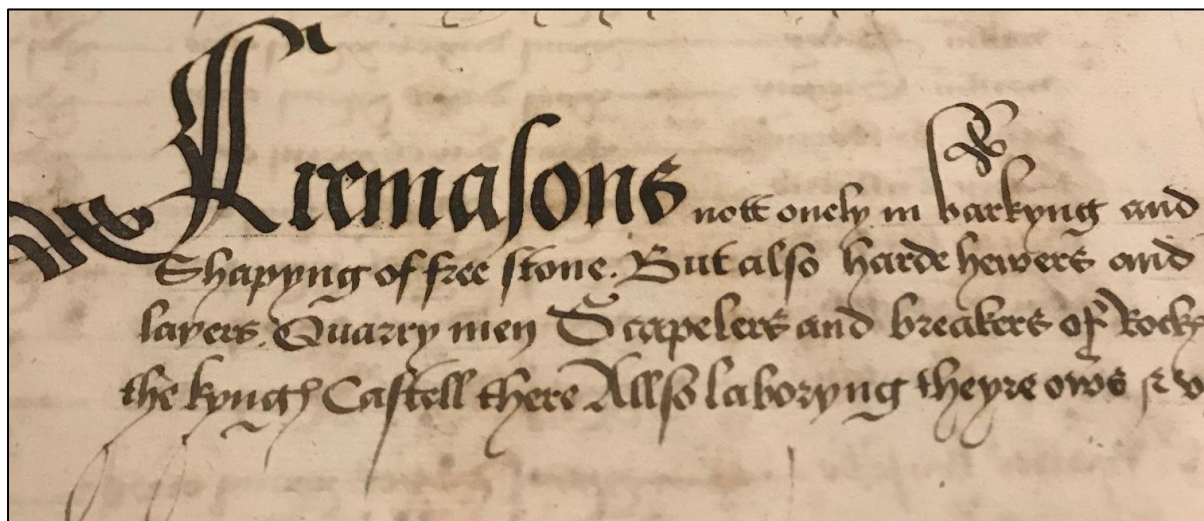 Firemasons nott onely in harkyng and
Shapyng of free stone. But also harde hewers and
layers. Quarry men Scapelers and breakers of Rocks
the kyngs Castell there Allso laboryng theyre ows